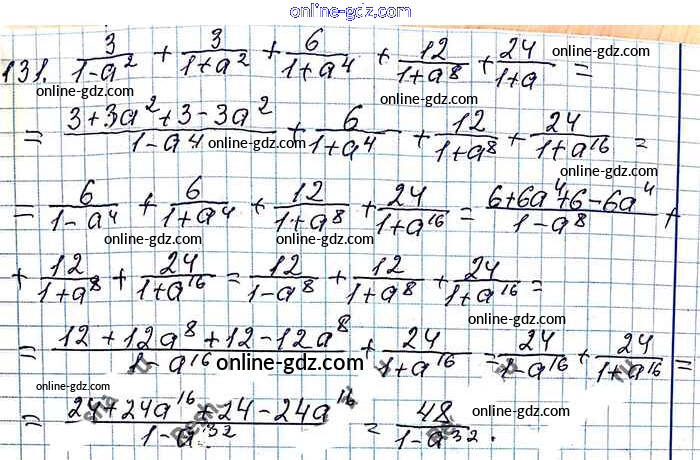 online-gdz.com
131. 3/(1-a²) + 3/(1+a²) + 6/(1+a⁴) + 12/(1+a⁸) + 24/(1+a) =
online-gdz.com online-gdz.com online-gdz.com
= (3+3a²+3-3a²)/(1-a⁴) + 6/(1+a⁴) + 12/(1+a⁸) + 24/(1+a¹⁶) =
online-gdz.com online-gdz.com
= 6/(1-a⁴) + 6/(1+a⁴) + 12/(1+a⁸) + 24/(1+a¹⁶) = (6+6a⁴+6-6a⁴)/(1-a⁸) +
online-gdz.com online-gdz.com online-gdz.com
+ 12/(1+a⁸) + 24/(1+a¹⁶) = 12/(1-a⁸) + 12/(1+a⁸) + 24/(1+a¹⁶) =
online-gdz.com online-gdz.com online-gdz.com
= (12+12a⁸+12-12a⁸)/(1-a¹⁶) + 24/(1+a¹⁶) = 24/(1-a¹⁶) + 24/(1+a¹⁶) =
online-gdz.com online-gdz.com
online-gdz.com
= (24+24a¹⁶+24-24a¹⁶)/(1-a³²) = 48/(1-a³²).
online-gdz.com